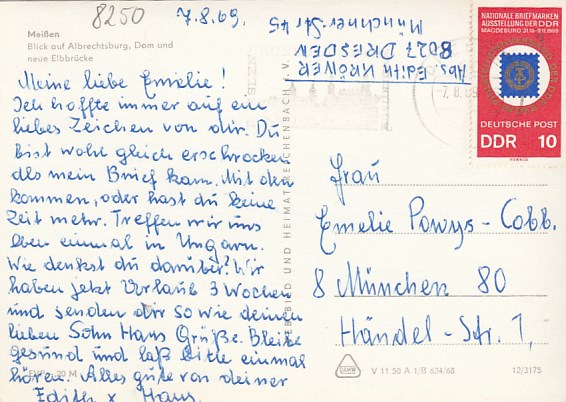 8250
7.8.69.
Meißen
Blick auf Albrechtsburg, Dom und
neue Elbbrücke
Meine liebe Emelie!
Ich hoffte immer auf ein
liebes Zeichen von dir. Du
bist wohl gleich erschrocken
des mein Brief kam. Mit den
kommen, oder hast du keine
Zeit mehr. Treffen wir uns
eben einmal in Ungarn.
Wie denkst du darüber? Wir
haben jetzt Urlaub 3 Wochen
und senden dir so wie deinen
lieben Sohn Hans Grüße. Bleibe
gesund und laß bitte einmal
hören. Alles gute von deiner
Edith x Hans.
EVP 20 M
BILD UND HEIMAT REICHENBACH I. V.
Abs. Edith KRÖWER
8027 DRESDEN
Münchner-Str 45
NATIONALE BRIEFMARKEN
AUSSTELLUNG DER DDR
MAGDEBURG 31.10-9.11.1969
DEUTSCHE POST
DDR 10
Frau
Emelie Powys-Cobb.
8 München 80
Händel-Str. 1,
V 11 50 A 1/B 624/68
12/3175